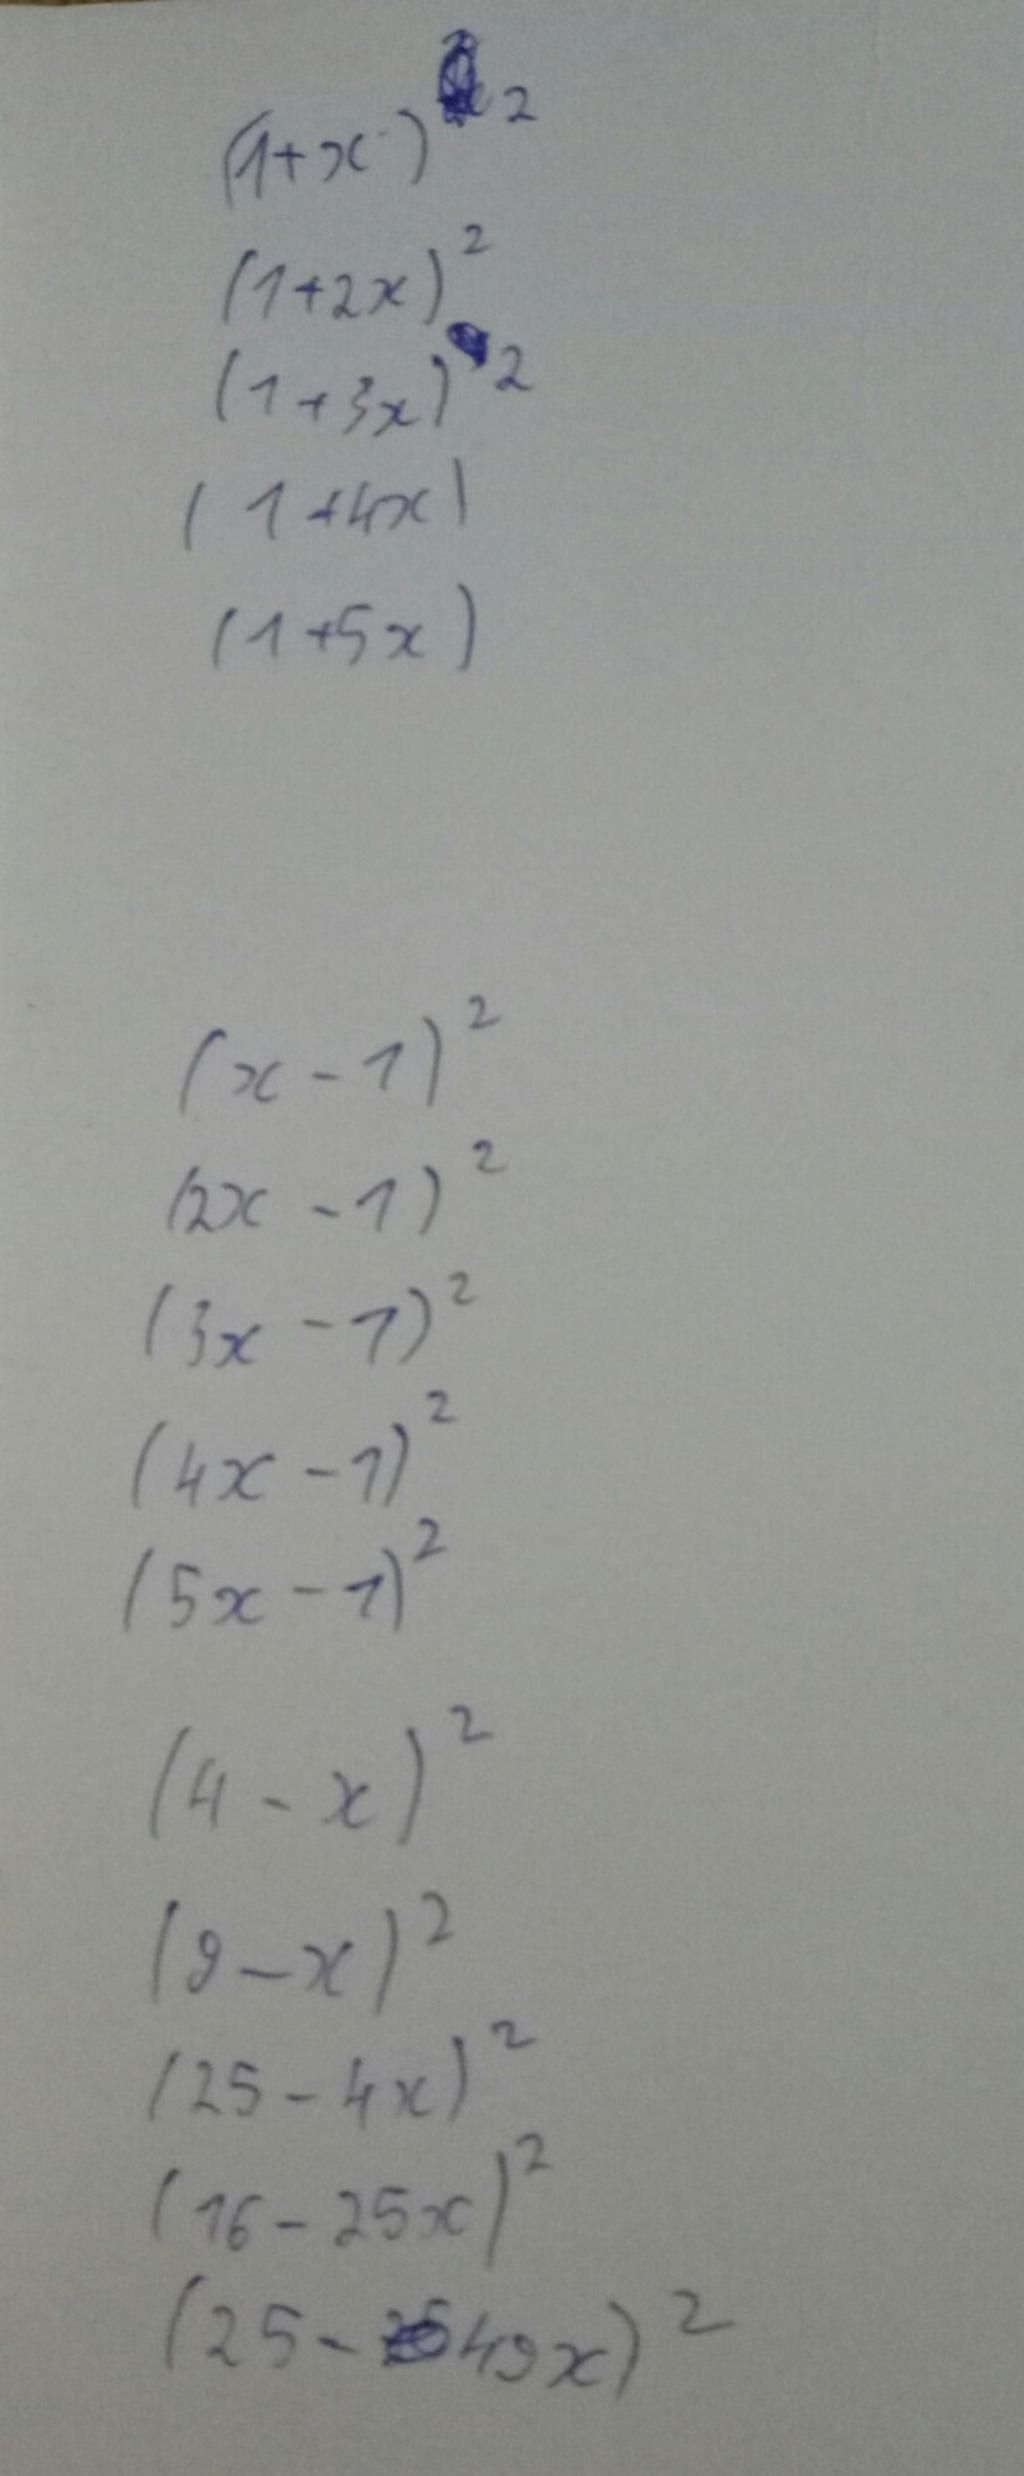 (1+x)²
(1+2x)²
(1+3x)²
(1+4x)
(1+5x)
(x-1)²
(2x-1)²
(3x-1)²
(4x-1)²
(5x-1)²
(4-x)²
(9-x)²
(25-4x)²
(16-25x)²
(25-49x)²